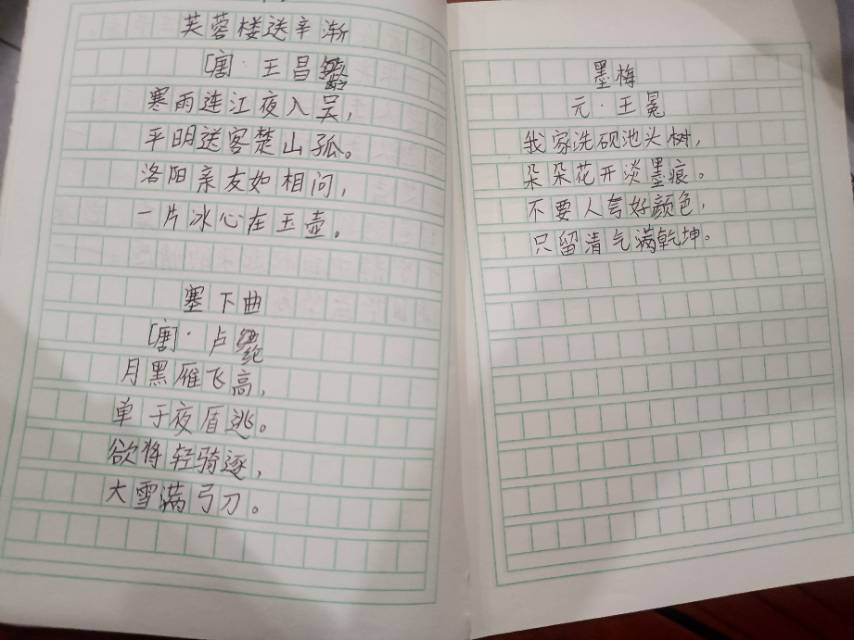 芙蓉楼送辛渐
[唐]·王昌龄
寒雨连江夜入吴，
平明送客楚山孤。
洛阳亲友如相问，
一片冰心在玉壶。
塞下曲
[唐]·卢纶
月黑雁飞高，
单于夜盾逃。
欲将轻骑逐，
大雪满弓刀。
墨梅
元·王冕
我家洗砚池头树，
朵朵花开淡墨痕。
不要人夸好颜色，
只留清气满乾坤。